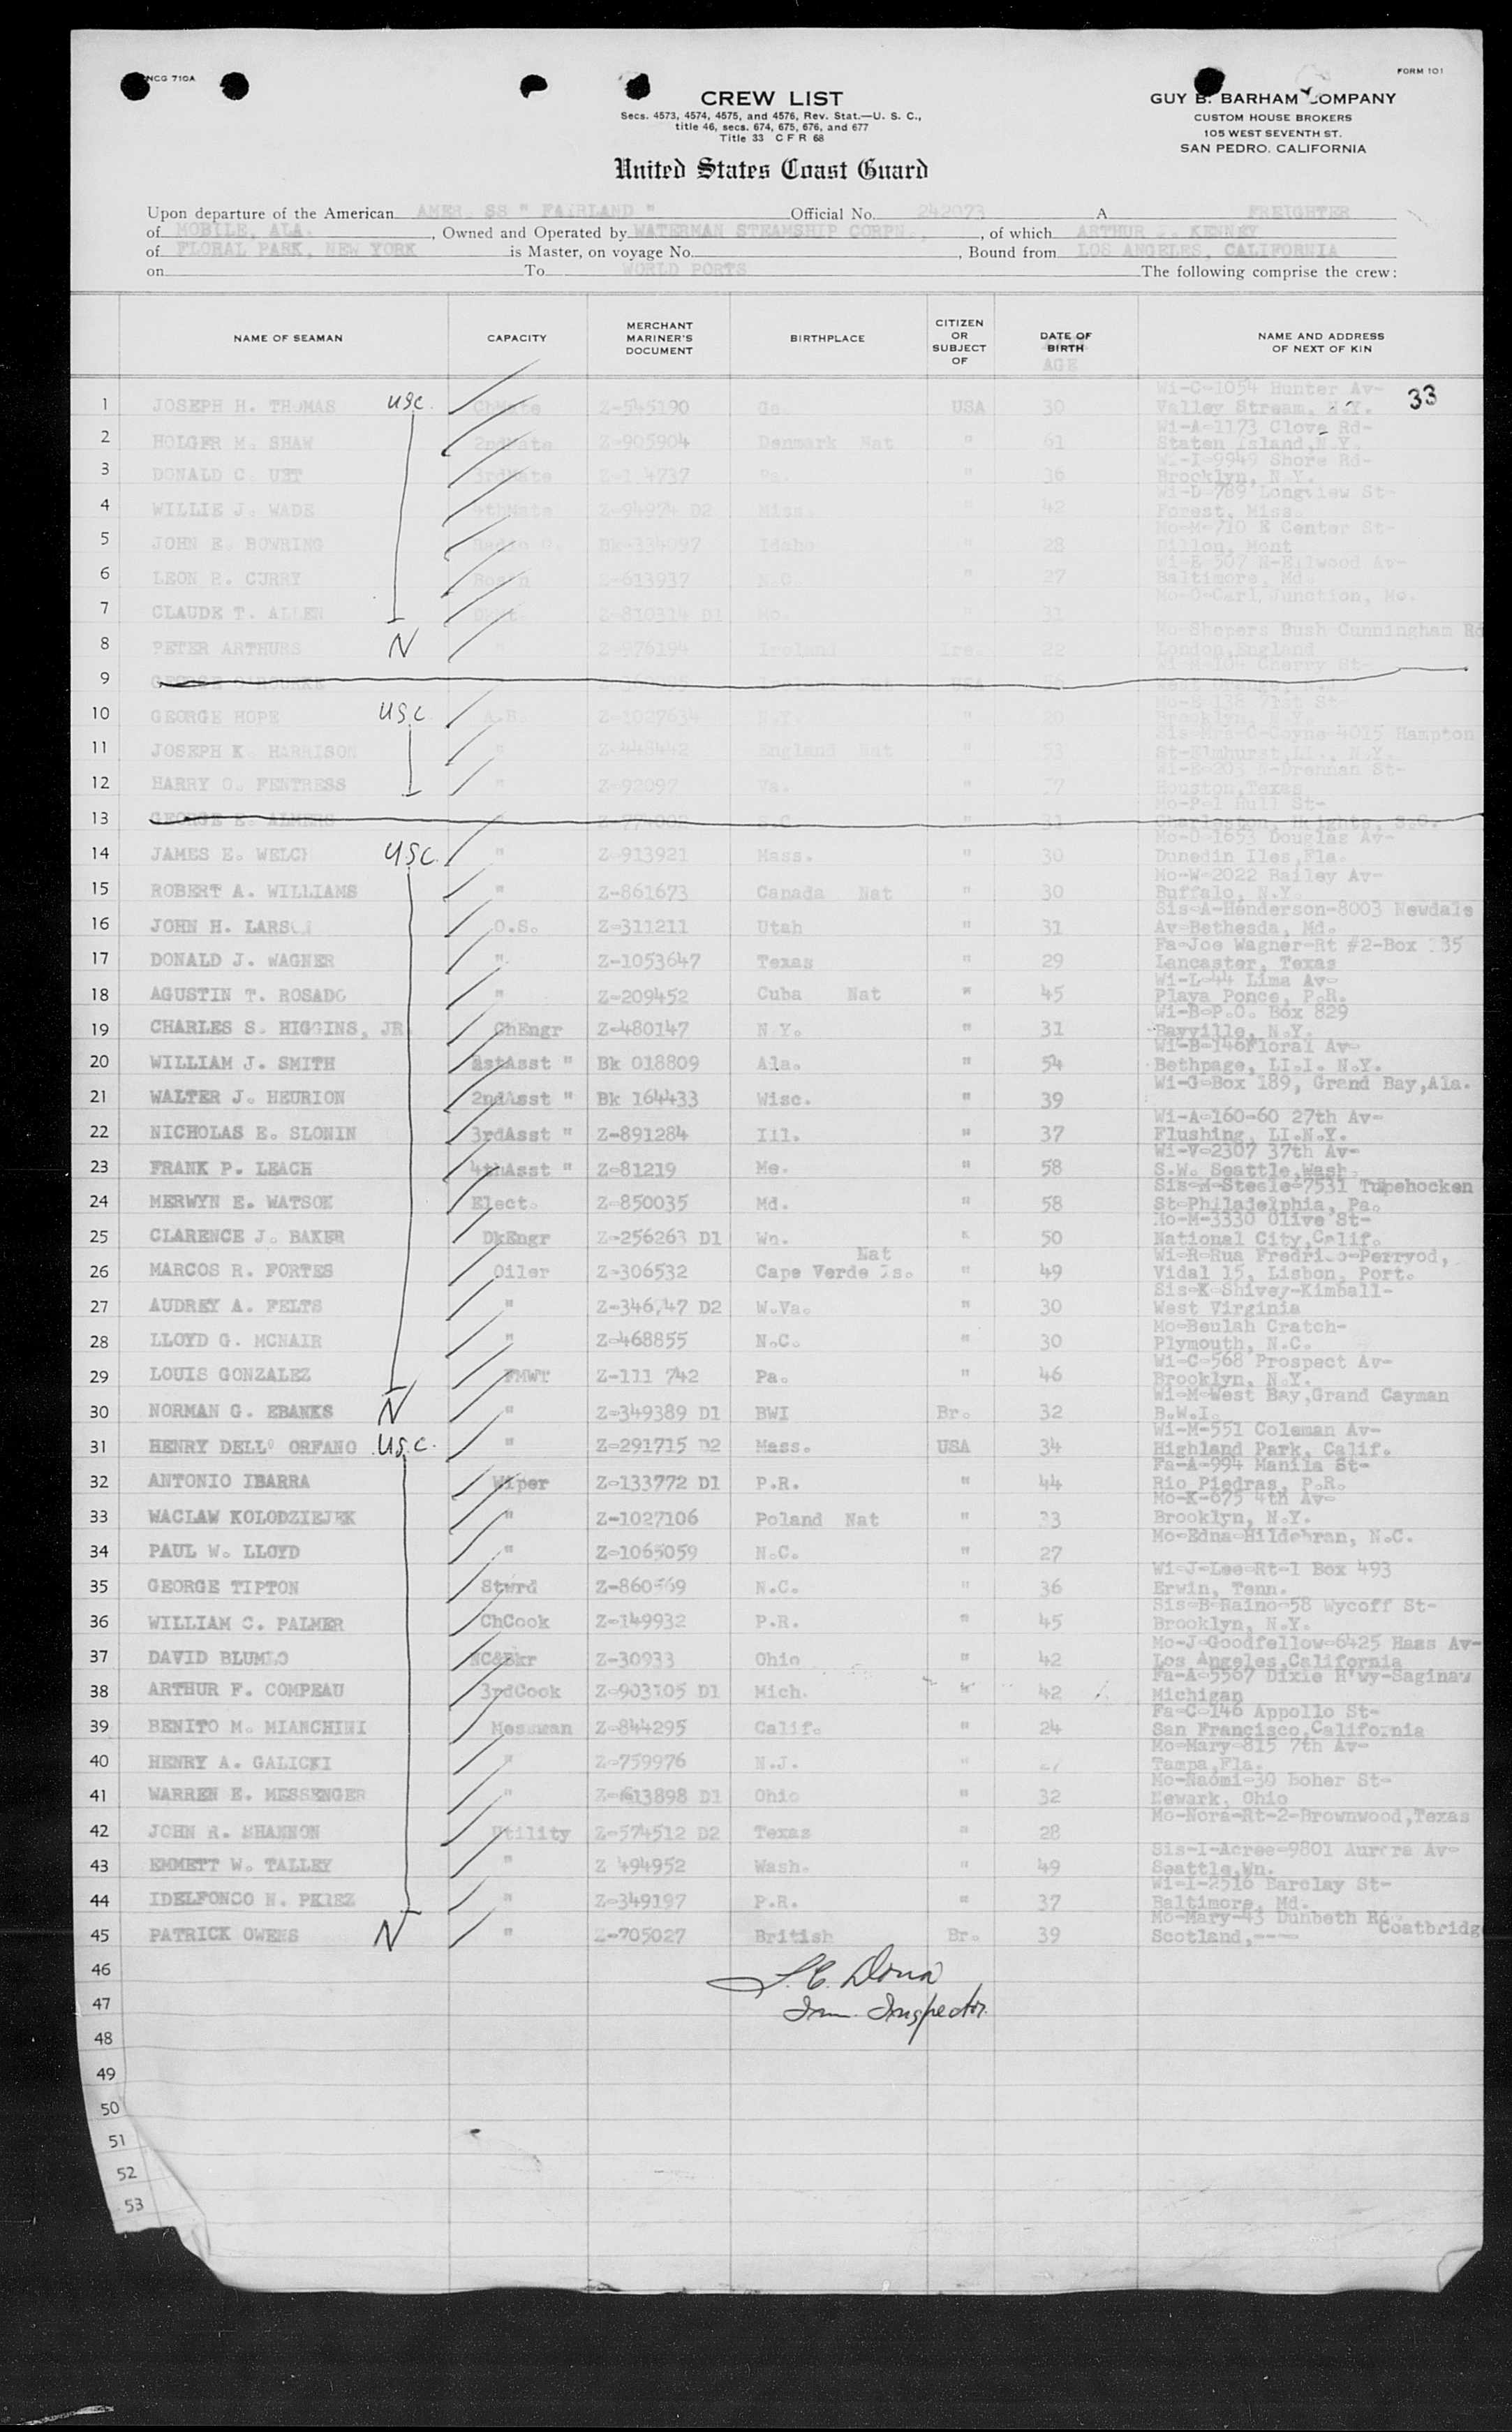 NCG 710A
FORM 101
CREW LIST
Secs. 4573, 4574, 4575, and 4576, Rev. Stat.—U. S. C.,
title 46, secs. 674, 675, 676, and 677
Title 33 C F R 68
United States Coast Guard
GUY B. BARHAM COMPANY
CUSTOM HOUSE BROKERS
105 WEST SEVENTH ST.
SAN PEDRO, CALIFORNIA
Upon departure of the American AMER. SS " FAIRLAND " Official No. 242073 A FREIGHTER
of MOBILE, ALA. , Owned and Operated by WATERMAN STEAMSHIP CORPN., , of which ARTHUR KENNEY
of FLORAL PARK, NEW YORK is Master, on voyage No. , Bound from LOS ANGELES, CALIFORNIA
on To WORLD PORTS The following comprise the crew:
NAME OF SEAMAN CAPACITY MERCHANT MARINER'S DOCUMENT BIRTHPLACE CITIZEN OR SUBJECT OF DATE OF BIRTH AGE NAME AND ADDRESS OF NEXT OF KIN
33
1 JOSEPH H. THOMAS USC. ChMate Z-545190 Ga. USA 30 Wi-C-1054 Hunter Av-
Valley Stream, N.Y.
2 HOLGER M. SHAW 2ndMate Z-905904 Denmark Nat " 61 Wi-A-1173 Clove Rd-
Staten Island, N.Y.
3 DONALD C. 3rdMate Pa. " 36 9949 Shore Rd-
Brooklyn, N.Y.
4 WILLIE J. WADE 4thMate Z-94974 D2 Miss. " 42 Wi-D-789 Longview St-
Forest, Miss.
5 JOHN E. BOWRING Radio O. Bk-334097 Idaho " 28 Mo-M-710 E Center St-
Dillon, Mont
6 LEON R. CURRY Bosn Z-613937 N.C. " 27 Wi-E-507 N-Ellwood Av-
Baltimore, Md.
7 CLAUDE T. ALLEN Z-810314 D1 Mo. " Mo-O-Carl Junction, Mo.
8 PETER ARTHURS N " Z-976194 Ireland Ire. 22 Shepers Bush Cunningham Rd
London, England
9 GEORGE O'ROURKE USA 104 Cherry St-
10 GEORGE HOPE USC A.B. Z-1027634 N.Y. " 20 138 71st St-
Brooklyn, N.Y.
11 JOSEPH K. HARRISON " Z-448442 England Nat " 53 Sis-Mrs-C-Coyne-4015 Hampton
St-Elmhurst, LI., N.Y.
12 HARRY O. FENTRESS " Z-92097 Va. " Wi-E-203 N-Drennan St-
Houston, Texas
13 GEORGE E. S.C. " 31 Mo-P-1 Hull St-
Charleston, Heights, S.C.
14 JAMES E. WELCH USC. " Z-913921 Mass. " 30 Mo-D-1653 Douglas Av-
Dunedin Iles, Fla.
15 ROBERT A. WILLIAMS " Z-861673 Canada Nat " 30 Mo-W-2022 Bailey Av-
Buffalo, N.Y.
16 JOHN H. LARSON O.S. Z-311211 Utah " 31 Sis-A-Henderson-8003 Newdale
Av-Bethesda, Md.
17 DONALD J. WAGNER " Z-1053647 Texas " 29 Fa-Joe Wagner-Rt #2-Box 135
Lancaster, Texas
18 AGUSTIN T. ROSADO " Z-209452 Cuba Nat " 45 Wi-L-44 Lima Av-
Playa Ponce, P.R.
19 CHARLES S. HIGGINS, JR ChEngr Z-480147 N.Y. " 31 Wi-B-P.O. Box 829
Bayville, N.Y.
20 WILLIAM J. SMITH 1stAsst " Bk 018809 Ala. " 54 Wi-B-146Floral Av-
Bethpage, LI.I. N.Y.
21 WALTER J. HEURION 2ndAsst " Bk 164433 Wisc. " 39 Wi-G-Box 189, Grand Bay,Ala.
22 NICHOLAS E. SLONIN 3rdAsst " Z-891284 Ill. " 37 Wi-A-160-60 27th Av-
Flushing, LI.N.Y.
23 FRANK P. LEACH 4thAsst " Z-81219 Me. " 58 Wi-V-2307 37th Av-
S.W. Seattle,Wash.
24 MERWYN E. WATSON Elect. Z-850035 Md. " 58 Sis-M-Steele-7531 Tupehocken
St-Philadelphia, Pa.
25 CLARENCE J. BAKER DkEngr Z-256263 D1 Wn. " 50 Mo-M-3330 Olive St-
National City,Calif.
26 MARCOS R. FORTES Oiler Z-306532 Cape Verde Is. Nat " 49 Wi-R-Rua Fredrico-Perryod,
Vidal 15, Lisbon, Port.
27 AUDREY A. FELTS " Z-346,47 D2 W.Va. " 30 Sis-K-Shivey-Kimball-
West Virginia
28 LLOYD G. MCNAIR " Z-468855 N.C. " 30 Mo-Beulah Cratch-
Plymouth, N.C.
29 LOUIS GONZALEZ FMWT Z-111 742 Pa. " 46 Wi-C-568 Prospect Av-
Brooklyn, N.Y.
30 NORMAN G. EBANKS N " Z-349389 D1 BWI Br. 32 Wi-M-West Bay,Grand Cayman
B.W.I.
31 HENRY DELL' ORFANO U.S.C. " Z-291715 D2 Mass. USA 34 Wi-M-551 Coleman Av-
Highland Park, Calif.
32 ANTONIO IBARRA Wiper Z-133772 D1 P.R. " 44 Fa-A-994 Manila St-
Rio Piedras, P.R.
33 WACLAW KOLODZIEJEK " Z-1027106 Poland Nat " 33 Mo-K-675 4th Av-
Brooklyn, N.Y.
34 PAUL W. LLOYD " Z-1065059 N.C. " 27 Mo-Edna-Hildebran, N.C.
35 GEORGE TIPTON Stwrd Z-860569 N.C. " 36 Wi-J-Lee-Rt-1 Box 493
Erwin, Tenn.
36 WILLIAM C. PALMER ChCook Z-149932 P.R. " 45 Sis-B-Raino-58 Wycoff St-
Brooklyn, N.Y.
37 DAVID NC&Bkr Z-30933 Ohio " 42 Mo-J-Goodfellow-6425 Haas Av-
Los Angeles,California
38 ARTHUR F. COMPEAU 3rdCook Z-903105 D1 Mich. " 42 Fa-A-5567 Dixie H'wy-Saginaw
Michigan
39 BENITO M. MIANCHINI Messman Z-844295 Calif. " 24 Fa-C-146 Appollo St-
San Francisco,California
40 HENRY A. GALICKI " Z-759976 N.J. " 27 Mo-Mary-815 7th Av-
Tampa,Fla.
41 WARREN E. MESSENGER " Z-613898 D1 Ohio " 32 Mo-Naomi-30 Boher St-
Newark, Ohio
42 JOHN R. SHANNON Utility Z-574512 D2 Texas " 28 Mo-Nora-Rt-2-Brownwood,Texas
43 EMMETT W. TALLEY " Z 494952 Wash. " 49 Sis-I-Acree-9801 Aurora Av-
Seattle,Wn.
44 IDELFONCO N. PEREZ " Z-349197 P.R. " 37 Wi-I-2516 Barclay St-
Baltimore, Md.
45 PATRICK OWENS N " Z-705027 British Br. 39 Mo-Mary-43 Dunbeth Rd. Coatbridge
Scotland,----
46
47
Imm. Inspector.
48
49
50
51
52
53